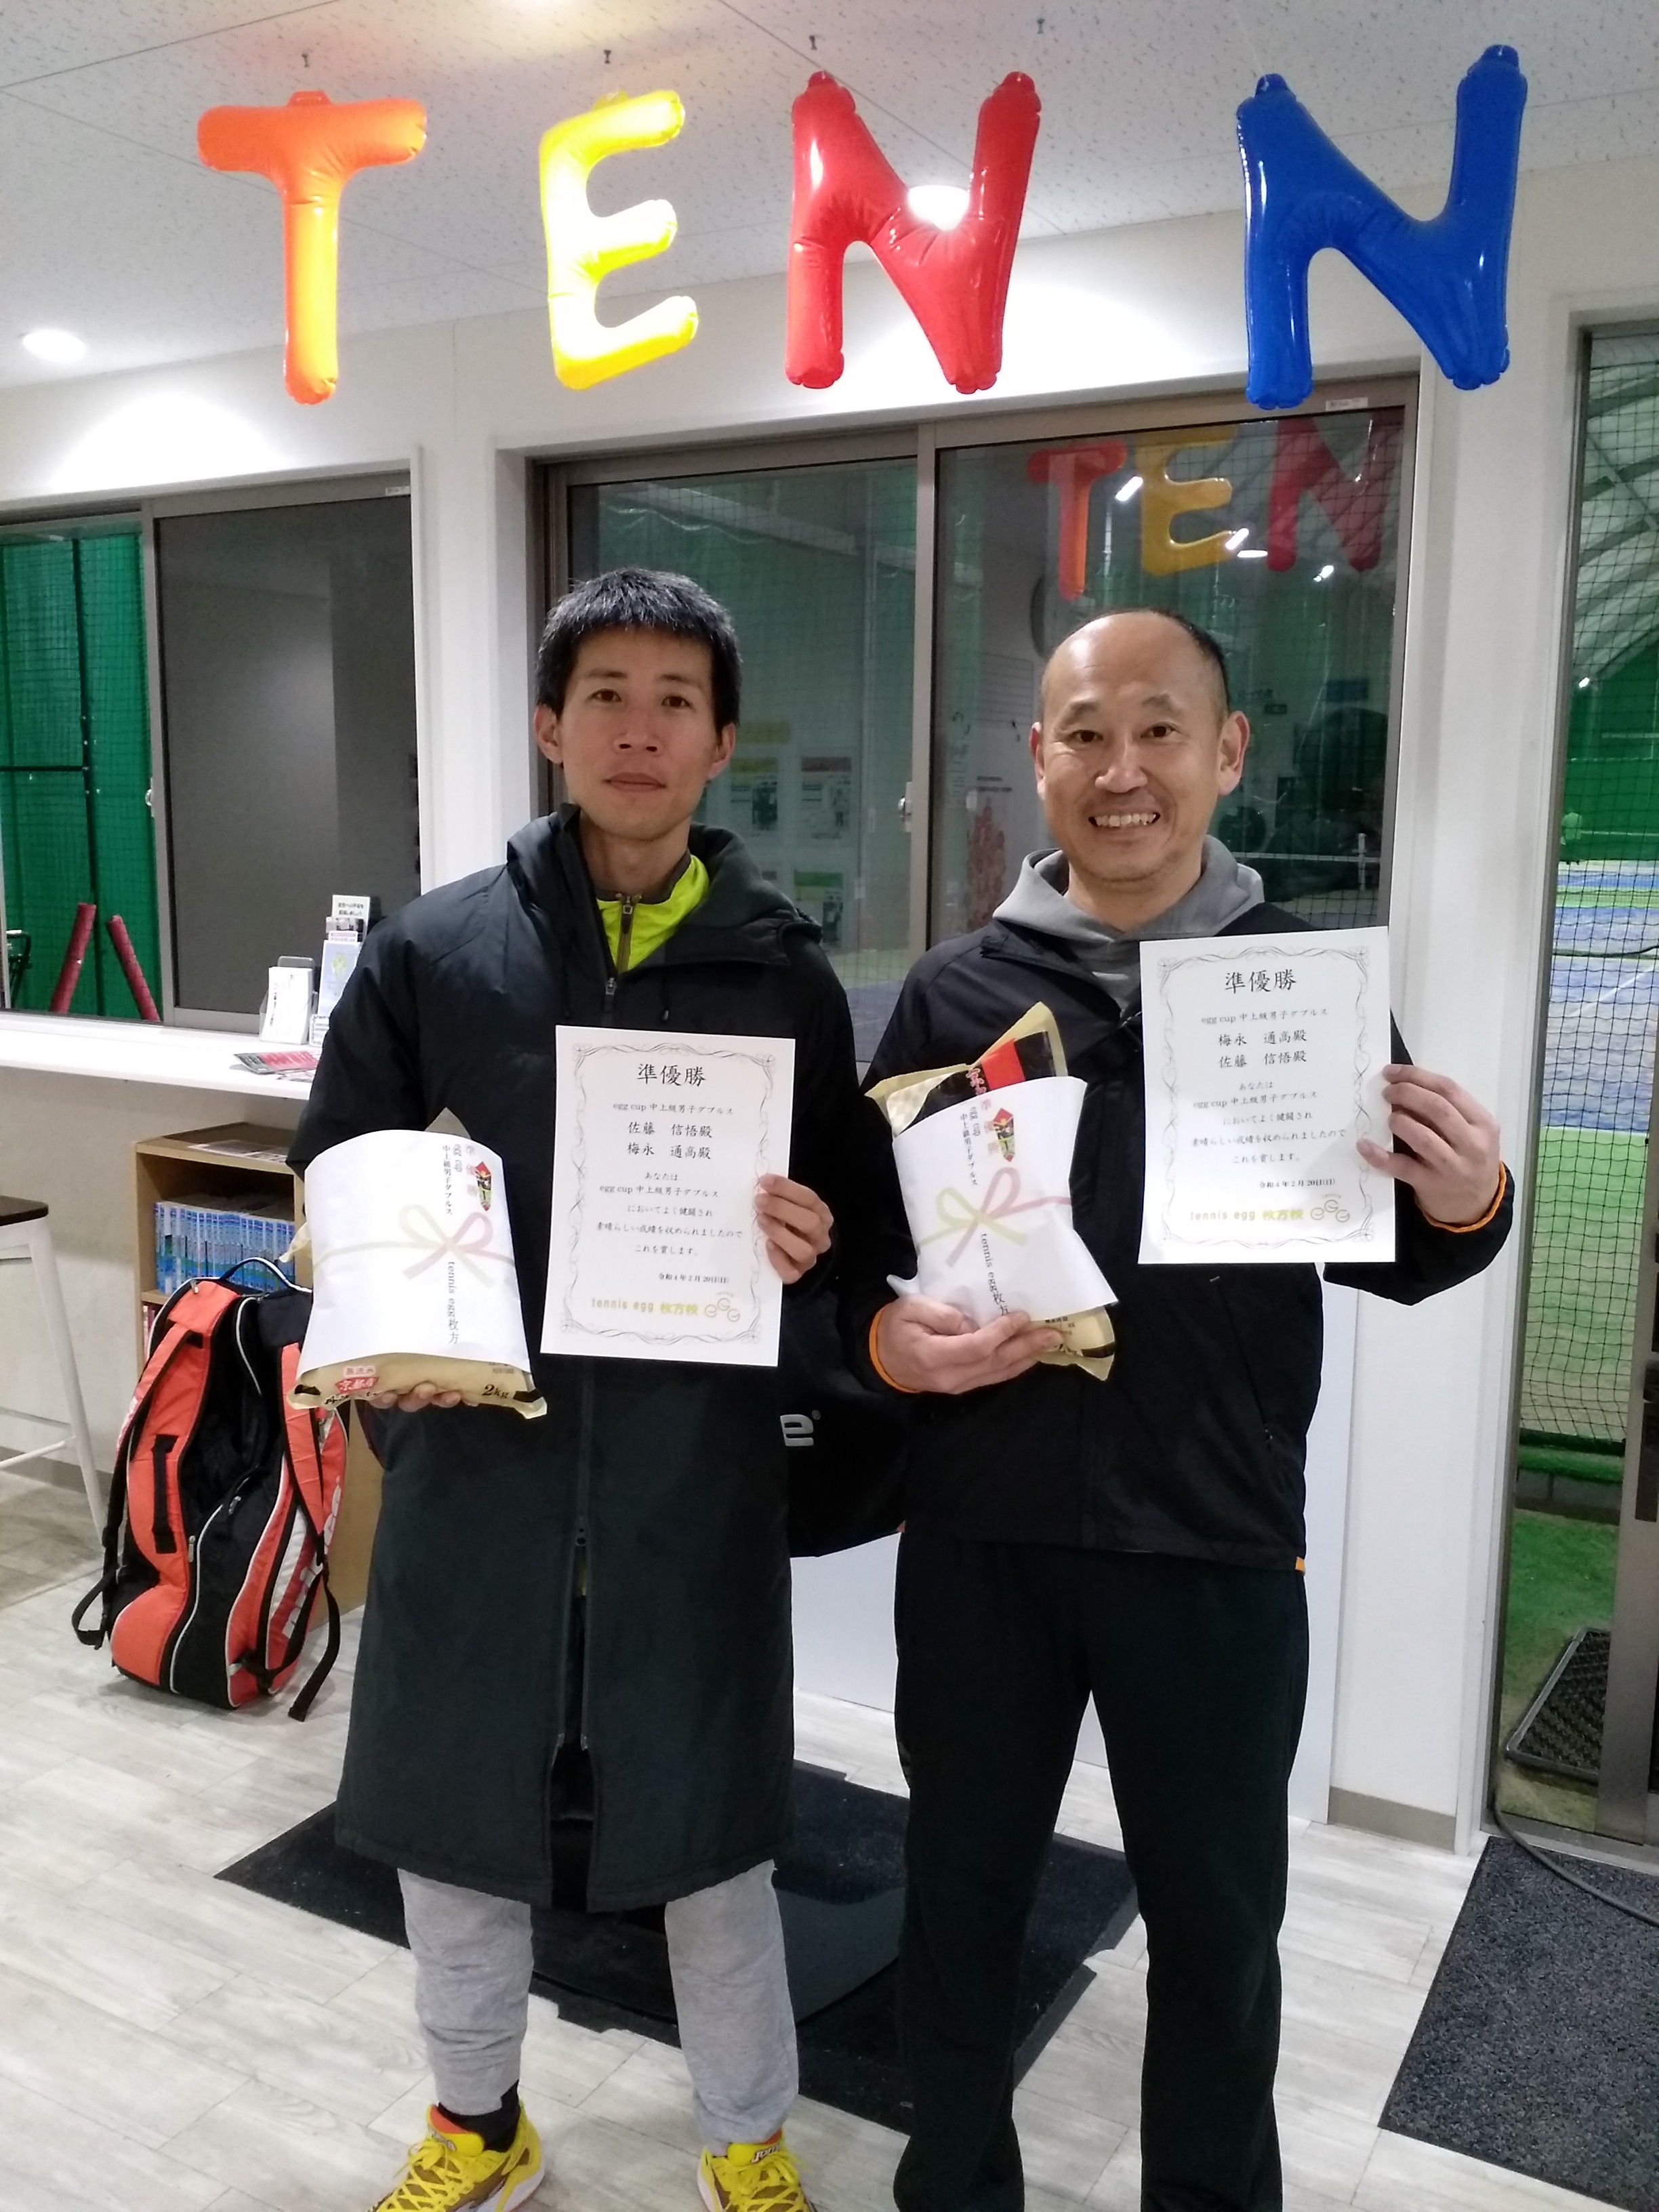 TEN N
準優勝
egg cup 中上級男子ダブルス
佐藤 信悟殿
梅永 通高殿
あなたは
egg cup 中上級男子ダブルス
においてよく健闘され
素晴らしい成績を収められましたので
これを賞します。
令和4年2月20日(日)
tennis egg 枚方校
準優勝
egg cup 中上級男子ダブルス
梅永 通高殿
佐藤 信悟殿
あなたは
egg cup 中上級男子ダブルス
においてよく健闘され
素晴らしい成績を収められましたので
これを賞します。
令和4年2月20日(日)
tennis egg 枚方校
準優勝
中上級男子ダブルス
tennis egg枚方
無洗米
京都府
2kg
準優勝
中上級男子ダブルス
tennis egg枚方